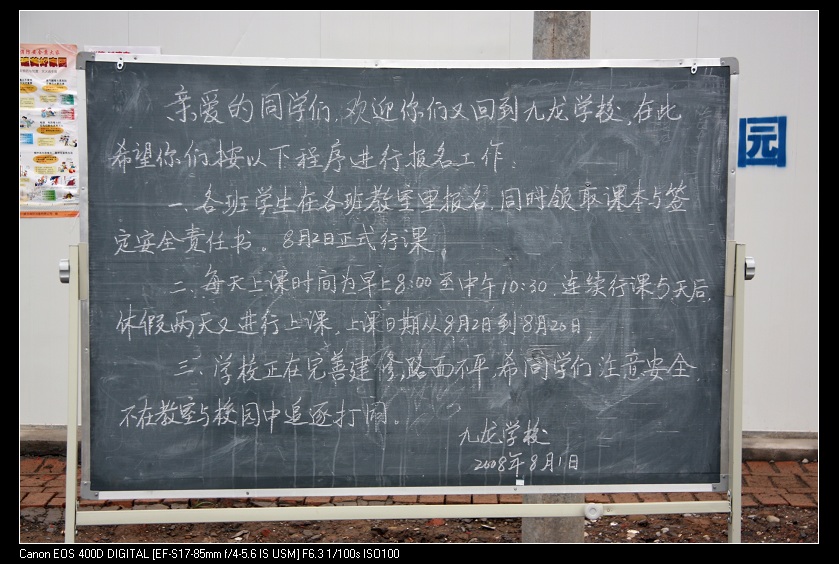 亲爱的同学们,欢迎你们又回到九龙学校,在此
希望你们按以下程序进行报名工作.
一、各班学生在各班教室里报名,同时领取课本与签
定安全责任书。8月2日正式行课.
二、每天上课时间为早上8:00至中午10:30.连续行课5天后,
休假两天又进行上课,上课日期从8月2日到8月20日,
三、学校正在完善建修,路面不平,希同学们注意安全.
不在教室与校园中追逐打闹。
九龙学校
2008年8月1日
园
Canon EOS 400D DIGITAL [EF-S17-85mm f/4-5.6 IS USM] F6.3 1/100s ISO100